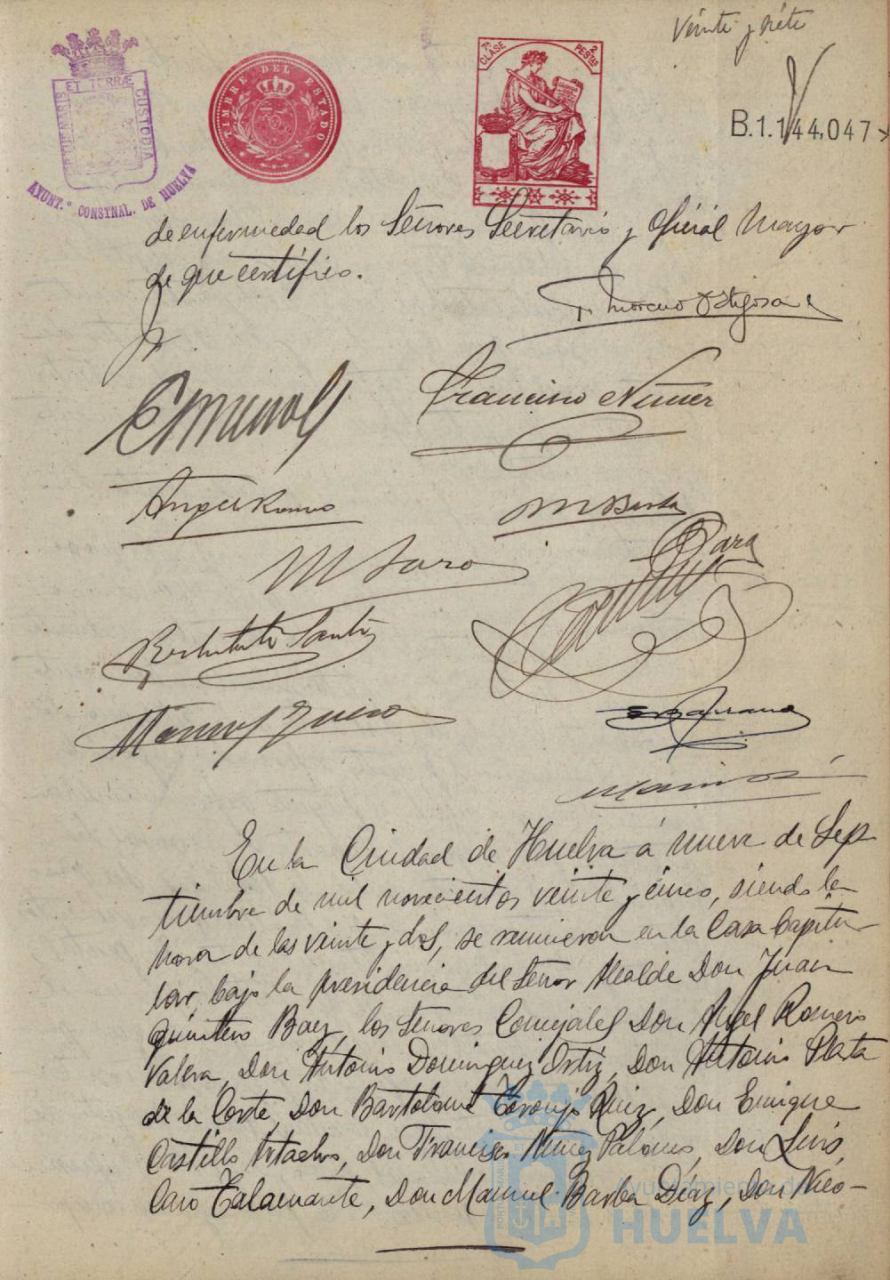 Veinte y siete
7ª CLASE 2 PESTAS
TIMBRE DEL ESTADO
ET TERRÆ CUSTODIA
AYUNT.º CONSTNAL. DE HUELVA
B.1.144,047
de enfermedad los Señores Secretario y Oficial Mayor
de que certifico.
Moreno
Francisco Núñez
Angel Romero
M Barba
En la Ciudad de Huelva á nueve de Sep
tiembre de mil novecientos veinte y cinco, siendo la
hora de las veinte y dos, se reunieron en la Casa Capitu-
lar, bajo la presidencia del Señor Alcalde Don Juan
Quintero Baez, los Señores Concejales Don Angel Romero
Valera, Don Antonio Dominguez Ortiz, Don Antonio Plata
de la Corte, Don Bartolomé Toronjo Ruiz, Don Enrique
Castillo Don Francisco Núñez Palomo, Don Luis
Caro Talamante, Don Manuel Barba Díaz, Don Nico-
Ayuntamiento de
HUELVA